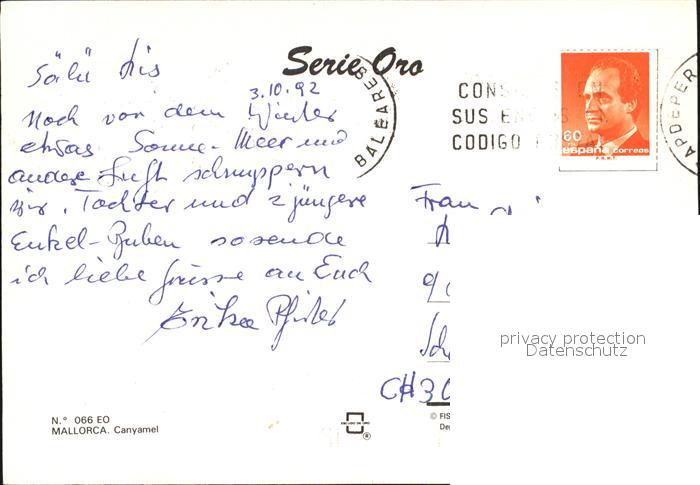 Serie Oro
Sälü Kis
3.10.92
Noch vor dem Winter
etwas Sonne-Meer und
andere Luft schnuppern
wir, Tochter und 2 jüngere
Enkel-Buben sosende
ich liebe Grüsse an Euch
Erika Pfister
BALEARES
CONS
SUS EN OS
CODIGO
APDEPER
60
españa correos
F.N.M.T.
Frau
Sch
CH 30
privacy protection
Datenschutz
N.° 066 EO
MALLORCA. Canyamel
ESCUDO DE ORO
®
© FIS
Dep